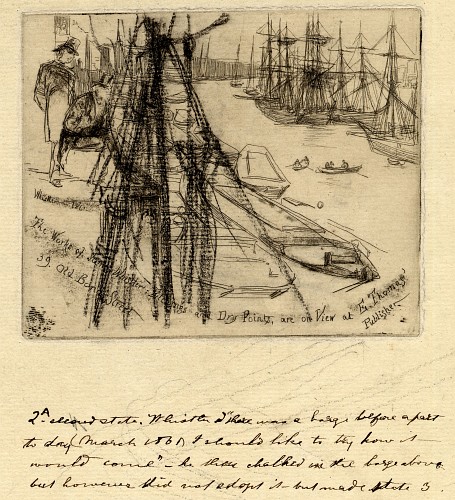 The Works of James
39. Old Bond Street
and Dry Points, are on View at E. Thomas'
Publisher
2d second state. Whistler
there was a barge before apart
to day (March 1861) I should like to try how it
would come" - he then chalked in the barge above
but however did not adopt it - but made state 3.